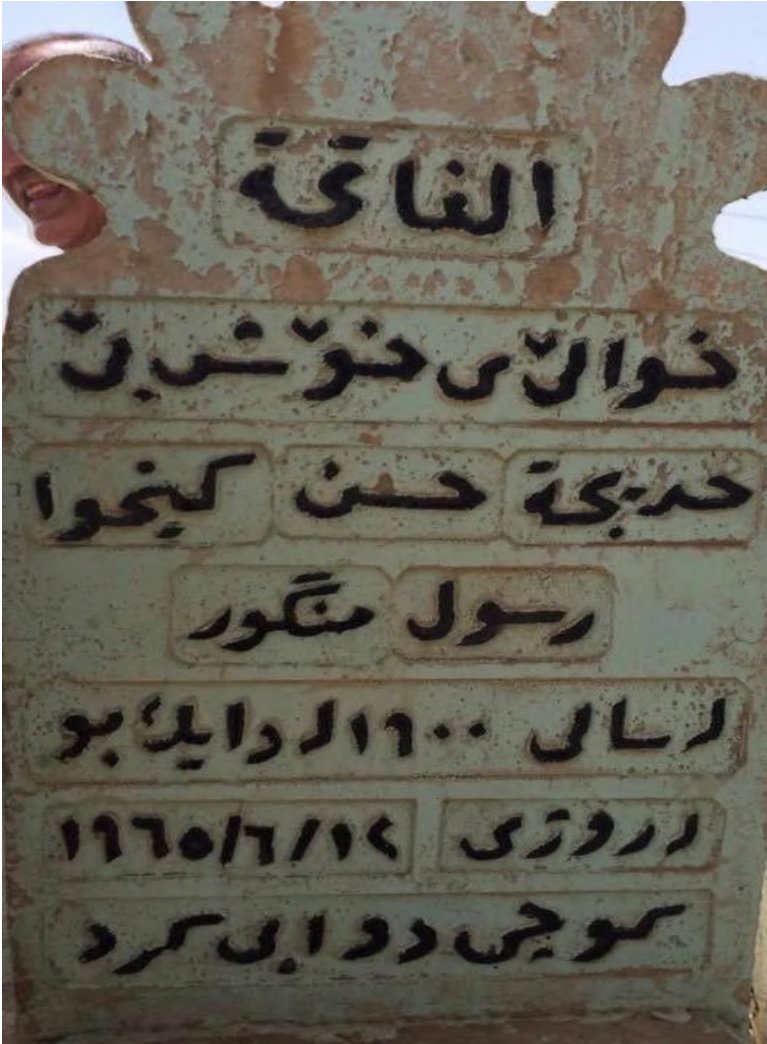 الفاتحة
خوالێی خۆش بێ
خديجة حسن كيخوا
رسول منگور
لەسالی ١٩٠٠ لە دایك بو
لەروژی ١٩٦٥/٦/١٢
کوچی دوایی کرد